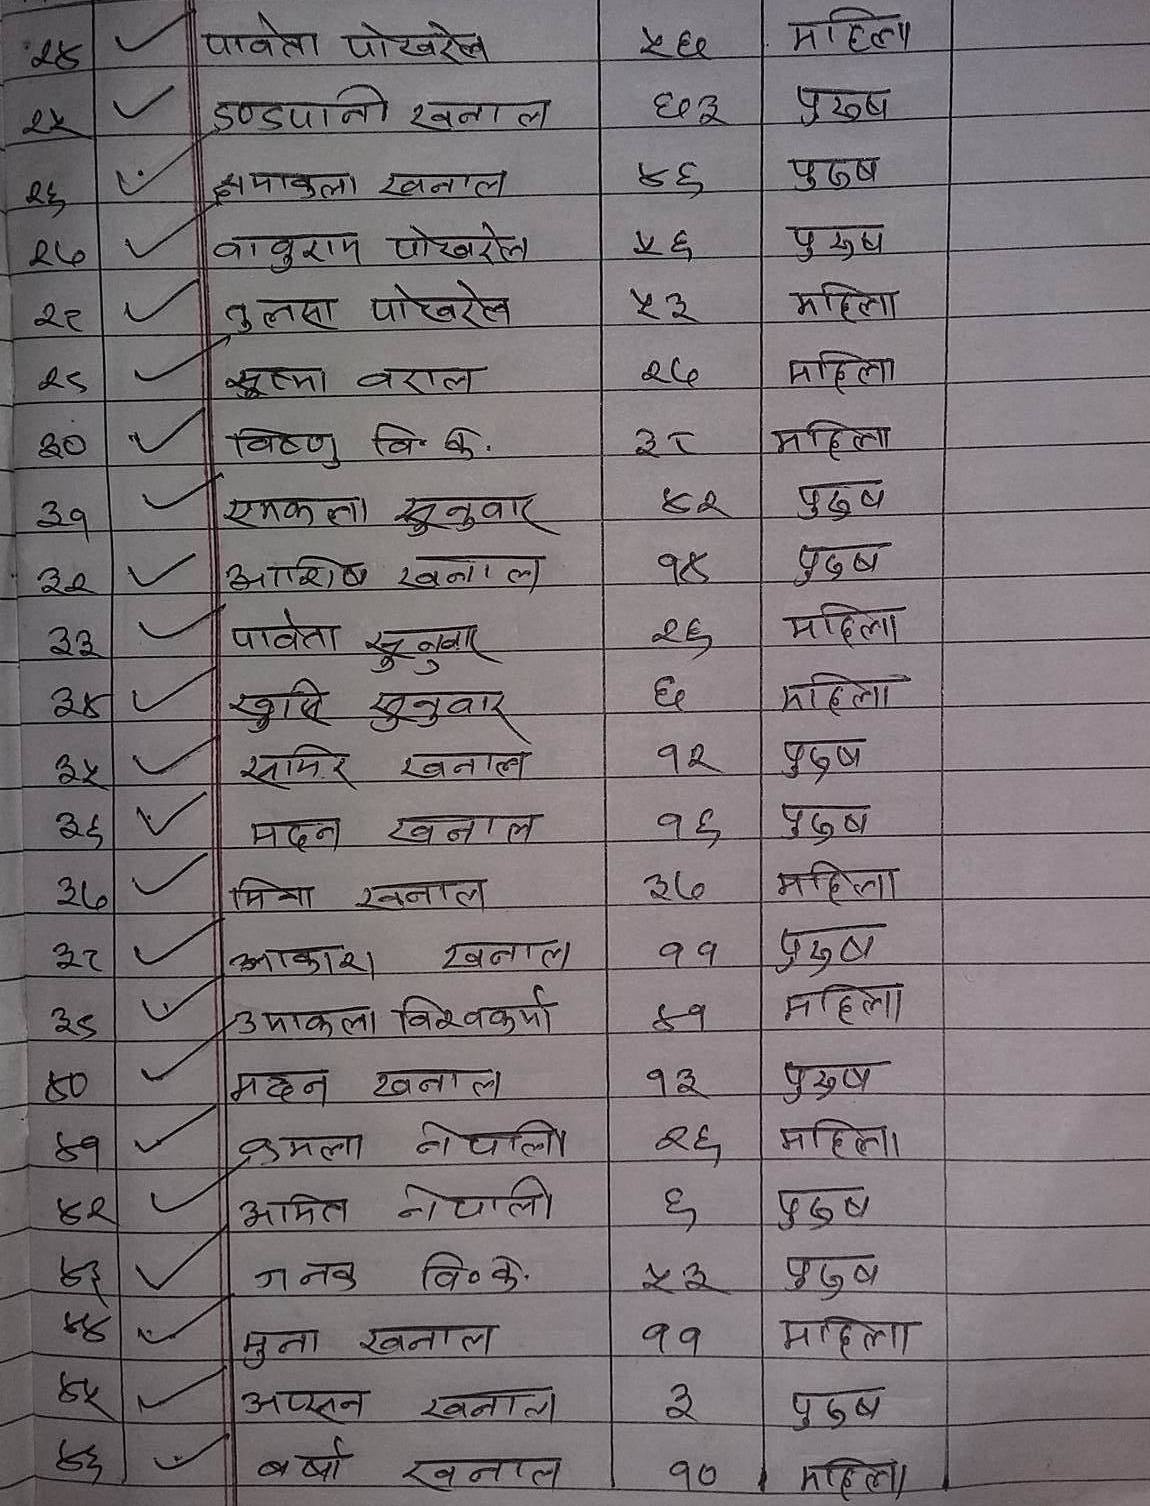 २४ पार्वता पोखरेल ५९ महिला
२५ डण्डपानी खनाल ६३ पुरुष
२६ खनाल ४६ पुरुष
२७ वावुराम पोखरेल ५६ पुरुष
२८ तुलसा पोखरेल ५३ महिला
२९ सुस्मा वराल २७ महिला
३० विष्णु वि. के. ३८ महिला
३१ एमकला सुनुवार ४२ पुरुष
३२ आशिष खनाल १४ पुरुष
३३ पार्वता सुनुवार २६ महिला
३४ खुसि सुनुवार ९ महिला
३५ समिर खनाल १२ पुरुष
३६ मदन खनाल १६ पुरुष
३७ खनाल ३७ महिला
३८ आकाश खनाल ११ पुरुष
३९ उमाकला विश्वकर्मा ४१ महिला
४० मदन खनाल १३ पुरुष
४१ कमला नेपाली २६ महिला
४२ अमित नेपाली ६ पुरुष
४३ जनक वि॰के. ५३ पुरुष
४४ मुना खनाल ११ महिला
४५ अप्सन खनाल ३ पुरुष
४६ बर्षा खनाल १० महिला